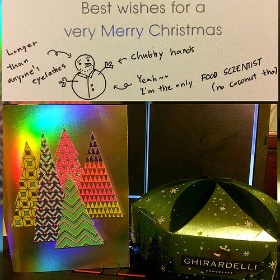 Best wishes for a
very Merry Christmas
Longer
than
anyone's
eyelashes
chubby hands
Yeah~~
I'm the only FOOD SCIENTIST
(no coconut tho)
GHIRARDELLI
CHOCOLATE